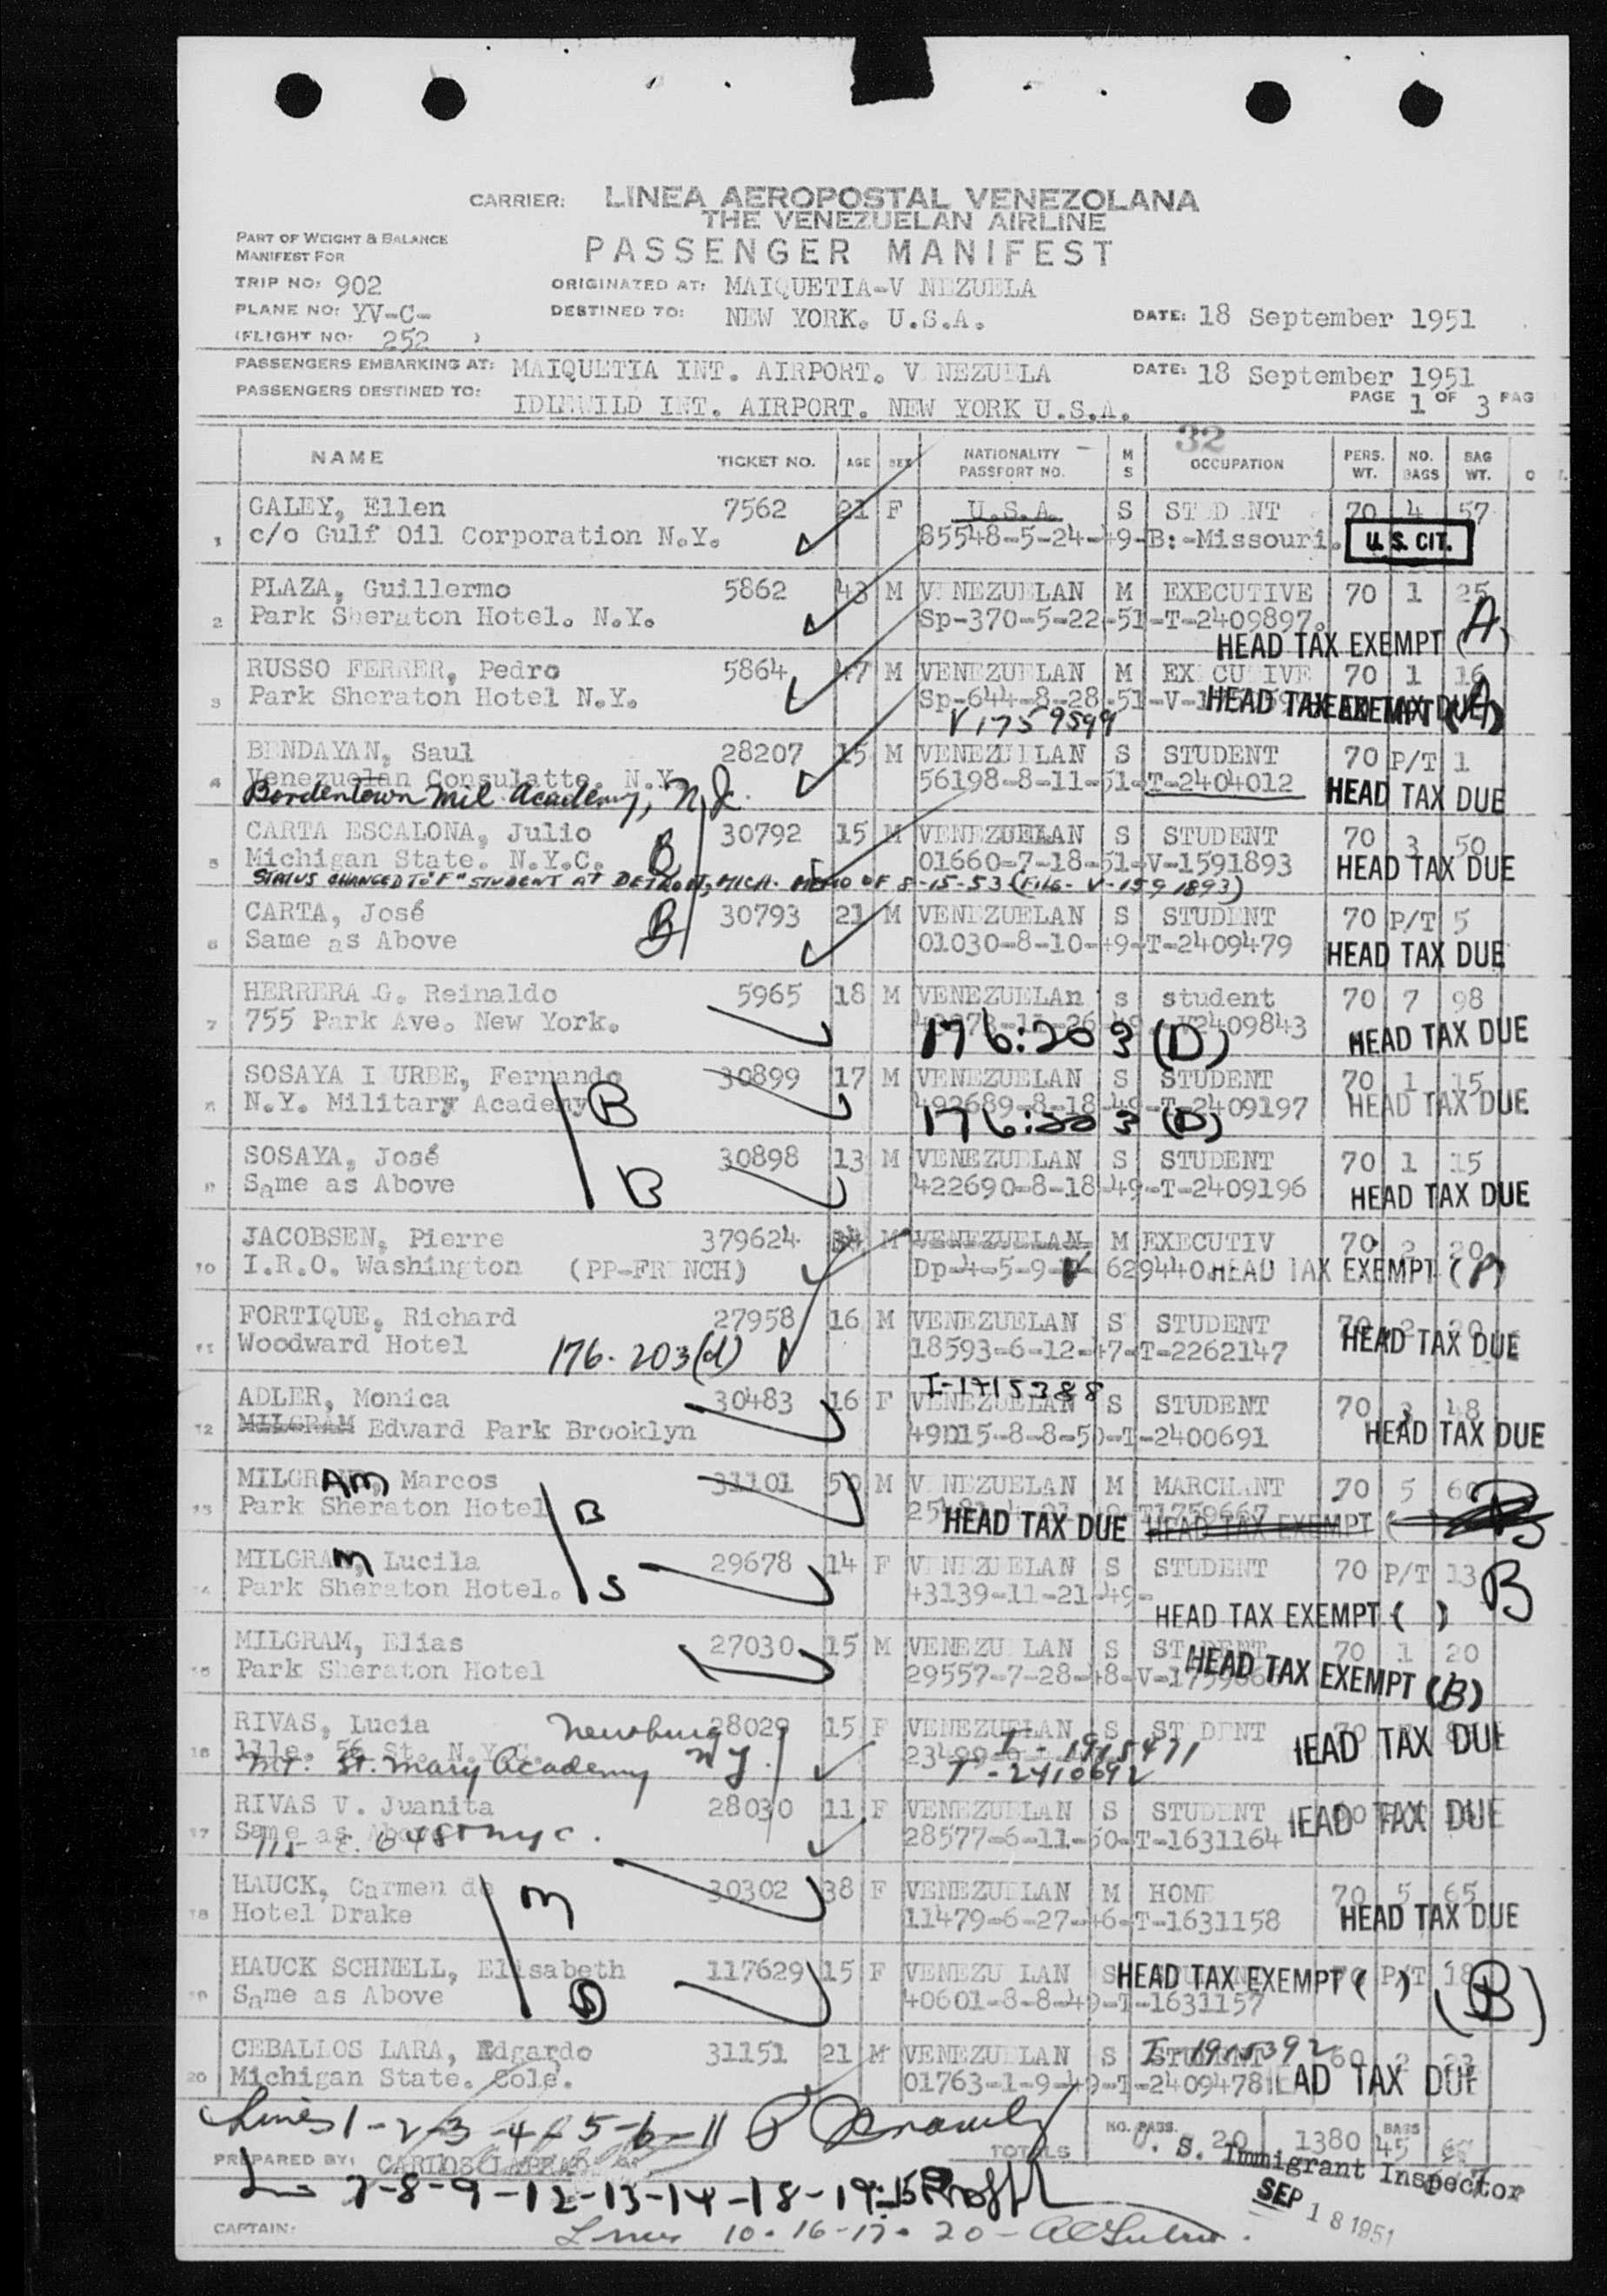 CARRIER: LINEA AEROPOSTAL VENEZOLANA
THE VENEZUELAN AIRLINE
PART OF WEIGHT & BALANCE
MANIFEST FOR
PASSENGER MANIFEST
TRIP NO: 902 ORIGINATED AT: MAIQUETIA-V NEZUELA
PLANE NO: YV-C- DESTINED TO: NEW YORK. U.S.A. DATE: 18 September 1951
(FLIGHT NO: 252 )
PASSENGERS EMBARKING AT: MAIQUETIA INT. AIRPORT. V NEZUELA DATE: 18 September 1951
PASSENGERS DESTINED TO: IDLEWILD INT. AIRPORT. NEW YORK U.S.A. PAGE 1 OF 3 PAG
32
NAME TICKET NO. AGE SEX NATIONALITY PASSPORT NO. M S OCCUPATION PERS. WT. NO. BAGS BAG WT.
GALEY, Ellen 7562 21 F U.S.A. S ST D NT 70 4 57
1 c/o Gulf Oil Corporation N.Y. 85548-5-24-49-B:-Missouri. U.S. CIT.
PLAZA, Guillermo 5862 43 M V NEZUELAN M EXECUTIVE 70 1 25
2 Park Sheraton Hotel. N.Y. Sp-370-5-22-51-T-2409897.
HEAD TAX EXEMPT (A)
RUSSO FERRER, Pedro 5864 47 M VENEZUELAN M EX CUTIVE 70 1 16
3 Park Sheraton Hotel N.Y. Sp-644-8-28-51-V- HEAD TAX EXEMPT (A)
V1759599
BENDAYAN, Saul 28207 15 M VENEZUELAN S STUDENT 70 P/T 1
4 Venezuelan Consulatte. N.Y. 56198-8-11-51-T-2404012 HEAD TAX DUE
Bordentown Mil. Academy, N.J.
CARTA ESCALONA, Julio B 30792 15 M VENEZUELAN S STUDENT 70 3 50
5 Michigan State. N.Y.C. 01660-7-18-51-V-1591893 HEAD TAX DUE
STATUS CHANGED TO "F" STUDENT AT DETROIT, MICH. MEMO OF 8-15-53 (FILE-V-1591893)
CARTA, José B 30793 21 M VENEZUELAN S STUDENT 70 P/T 5
6 Same as Above 01030-8-10-49-T-2409479 HEAD TAX DUE
HERRERA G. Reinaldo 5965 18 M VENEZUELAn s student 70 7 98
7 755 Park Ave. New York. 2409843 HEAD TAX DUE
176:203 (D)
SOSAYA I URBE, Fernando 30899 17 M VENEZUELAN S STUDENT 70 1 15
8 N.Y. Military Academy B 492689-8-18-49-T-2409197 HEAD TAX DUE
176:203 (D)
SOSAYA, José 30898 13 M VENEZUELAN S STUDENT 70 1 15
9 Same as Above B 422690-8-18-49-T-2409196 HEAD TAX DUE
JACOBSEN, Pierre 379624 34 M VENEZUELAN M EXECUTIV 70 2 20
10 I.R.O. Washington (PP-FRENCH) Dp-4-5-9- V 629440. HEAD TAX EXEMPT (A)
FORTIQUE, Richard 27958 16 M VENEZUELAN S STUDENT 70 2 20
11 Woodward Hotel 176.203(d) 18593-6-12-47-T-2262147 HEAD TAX DUE
I-1715388
ADLER, Monica 30483 16 F VENEZUELAN S STUDENT 70 3 48
12 MILGRAM Edward Park Brooklyn 49D15-8-8-50-T-2400691 HEAD TAX DUE
MILGRAM, Marcos 31101 50 M V NEZUELAN M MARCHANT 70 5 60
13 Park Sheraton Hotel B T1759667
HEAD TAX DUE HEAD TAX EXEMPT ( ) B
MILGRAM, Lucila 29678 14 F VENEZUELAN S STUDENT 70 P/T 13 B
14 Park Sheraton Hotel. S 43139-11-21-49-
HEAD TAX EXEMPT ( )
MILGRAM, Elias 27030 15 M VENEZU LAN S STUDENT 70 1 20
15 Park Sheraton Hotel 29557-7-28-48-V- HEAD TAX EXEMPT (B)
RIVAS, Lucia Newburg 28029 15 F VENEZUELAN S ST DENT HEAD TAX DUE
16 111e. 56 St. N.Y.C. I-1915471
Mt. St. Mary Academy N.Y. T-2410692
RIVAS V. Juanita 28030 11 F VENEZUELAN S STUDENT HEAD TAX DUE
17 Same as Above 28577-6-11-50-T-1631164
115 E. 64 St N.Y.C.
HAUCK, Carmen de M 30302 38 F VENEZUELAN M HOME 70 5 65
18 Hotel Drake 11479-6-27-46-T-1631158 HEAD TAX DUE
HAUCK SCHNELL, Elisabeth 117629 15 F VENEZU LAN S HEAD TAX EXEMPT ( ) P/T 18 (B)
19 Same as Above D 40601-8-8-49-T-1631157
CEBALLOS LARA, Edgardo 31151 21 M VENEZUELAN S STUDENT I-1915392 60 2 23
20 Michigan State. Cole. 01763-1-9-49-T-2409478 HEAD TAX DUE
Lines 1-2-3-4-5-6-11
TOTALS NO. PASS. 20 1380 BAGS 45
PREPARED BY: CARLOS
U. S. Immigrant Inspector
L- 7-8-9-12-13-14-18-19-15
SEP 18 1951
CAPTAIN:
Lines 10-16-17-20-